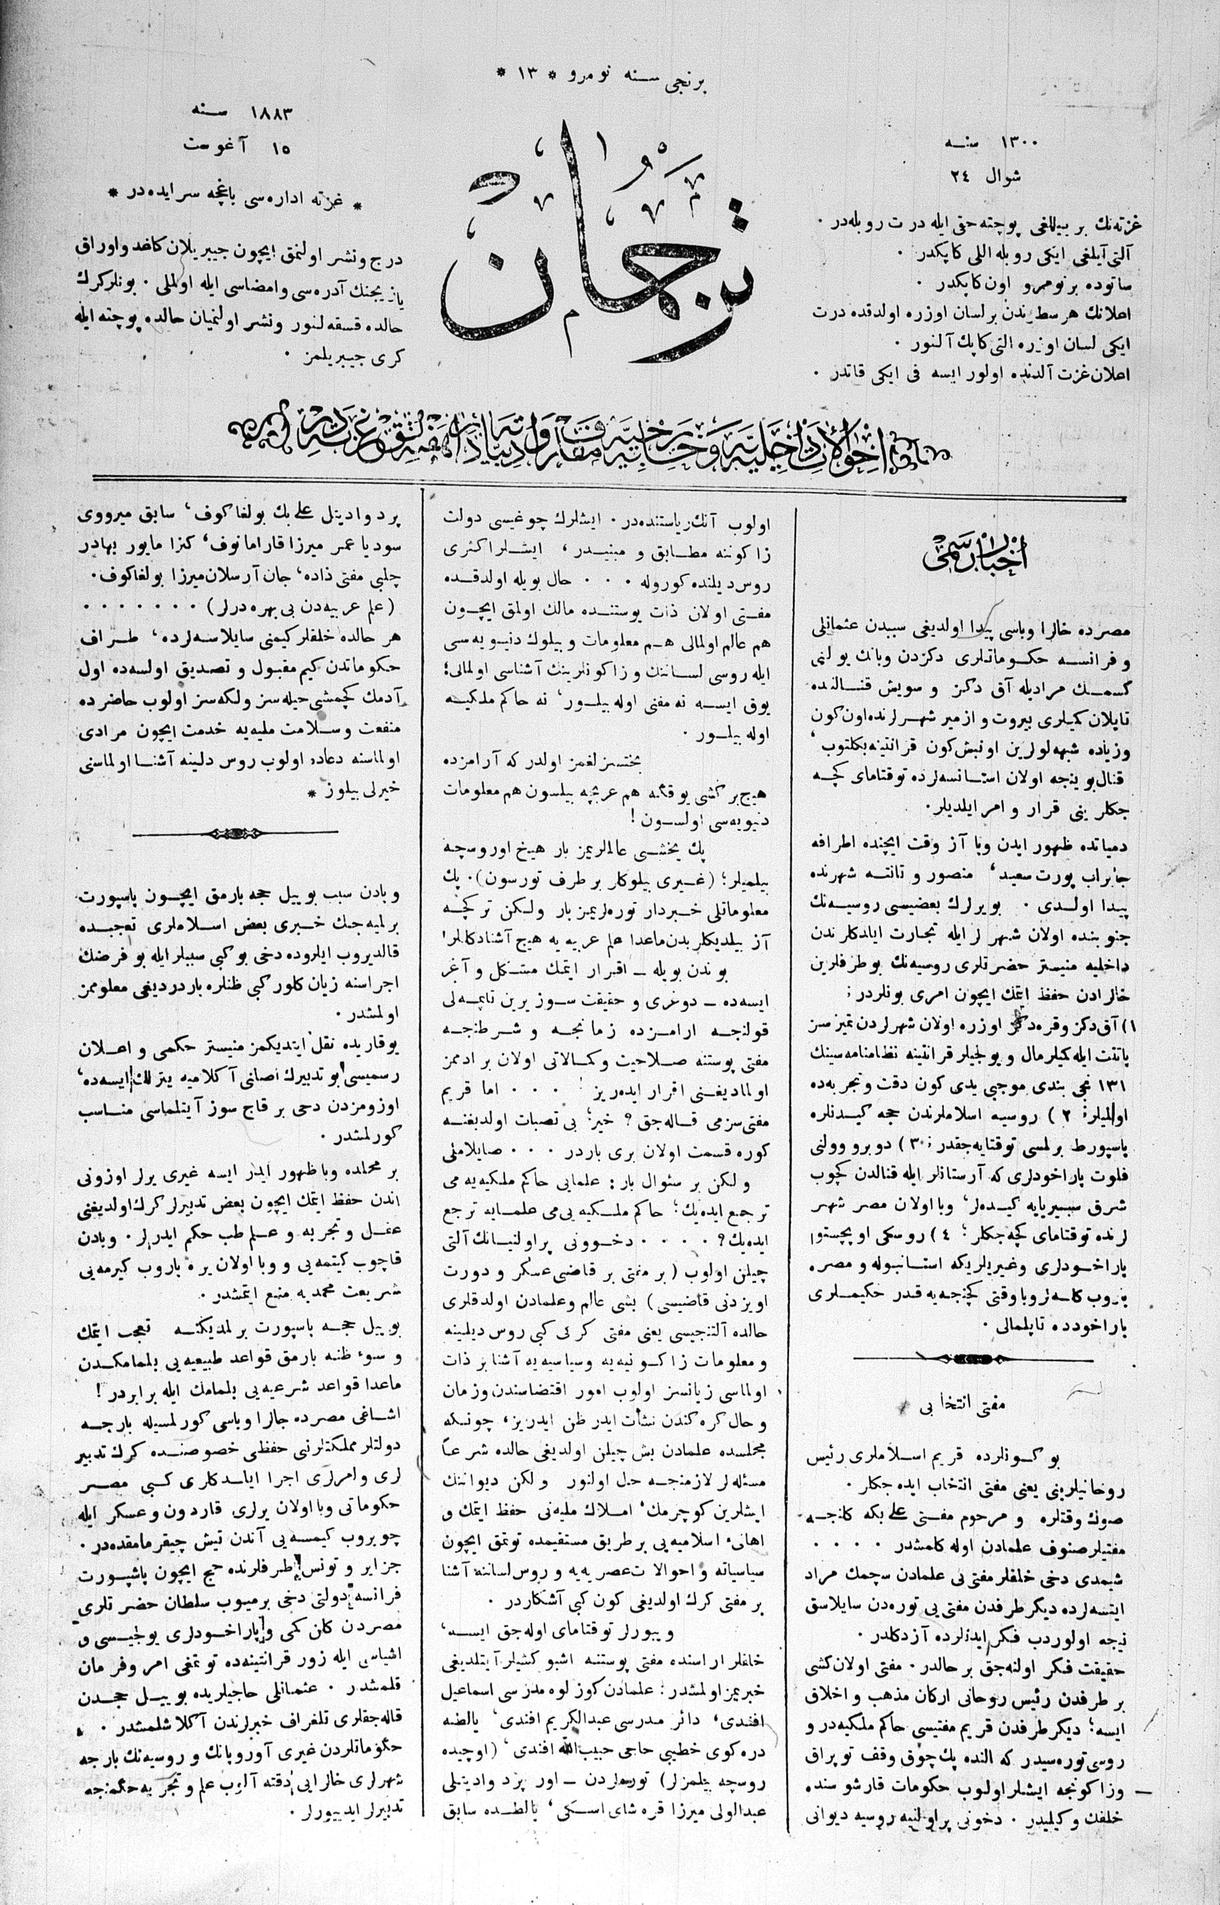 برنجی سنه نومرو * ١٣ *
١٣٠٠ سنه
شوال ٢٤
غزته‌نك بر ییللغی پوچته حقی ایله درت روبله‌در ٠
آلتی آیلغی ایکی روبله اللی کاپکدر ٠
ساتوده بر نومرو اون کاپکدر ٠
اعلانك هر سطرندن بر لسان اوزره اولدقده درت
ایکی لسان اوزره التی کاپك آلنور ٠
اعلان غزت آلدنده اولور ایسه فی ایکی قاتدر ٠
ترجمان
١٨٨٣ سنه
١٥ آغوست
* غزته اداره‌سی باغچه سرایده‌در *
درج و نشر اولنمق ایچون جیبریلان کاغد و اوراق
یازیجنك آدره‌سی و امضاسی ایله اولمالی ٠ بونلر کرك
حالده قسقه‌لنور و نشر اولنمیان حالده پوچته ایله
کری جیبریلمز ٠
اخبار رسمی
مصرده خالرا وباسی پیدا اولدیغی سببدن عثمانلی
و فرانسه حکوماتلری دکزدن وبانك یولنی
کسمك مرادیله آق دکز و سویش قنالنده
تابلان کمیلری بیروت و ازمیر شهرلرنده اون کون
و زیاده شبهه‌لولرین اونبش کون قرانتینه بکلتوب،
قنال بوینجه اولان استانسه‌لرده توقتامای کچه
جکلرینی قرار و امر ایلدیلر.
دمیاتده ظهور ایدن وبا آز وقت ایچنده اطرافه
جابراب پورت سعید، منصور و تانته شهرنده
پیدا اولدی ٠ بو یرلرك بعضیسی روسیه‌نك
جنوبنده اولان شهرلر ایله تجارت ایلدکلرندن
داخلیه منیستر حضرتلری روسیه‌نك بو طرفلرین
خالرادن حفظ ایتمك ایچون امری بونلردر:
١) آق دکز و قره دکز اوزره اولان شهرلردن تمیز سز
پاتنت ایله کیلر مال و یولجیلر قرانتینه نظامنامه‌سینك
١٣١ نجی بندی موجبی یدی کون دقت و تجربه‌ده
اولمیلر؛ ٢) روسیه اسلاملرندن حجه کیدنلره
پاسپورط برلمسی توقتایه‌جقدر؛ ٣) دوبرووولنی
فلوت پاراخودلری که آرستانلر ایله قنالدن کچوب
شرق سیبیریایه کیده‌لر، وبا اولان مصر شهر
لرنده توقتامای کچه‌جکلر؛ ٤) روسکی اوپچستوا
پاراخودلری و غیریلریکه استانبوله و مصره
باروب کله‌لر وبا وقتی کچنجه‌یه قدر حکیملری
پاراخودده تاپلمالی ٠
مفتی انتخابی
بو کونلرده قریم اسلاملری رئیس
روحانیلرینی یعنی مفتی انتخاب ایده جکلر ٠
صوك وقتلره و مرحوم مفتی علی بکه کلنجه
مفتیلر صنوف علمادن اوله کلمشدر ٠٠٠٠
شیمدی دخی خلقلر مفتی‌نی علمادن سچمك مراد
ایتسه‌لرده دیگر طرفدن مفتی‌یی توره‌دن سایلاسق
نیجه اولور دب فکر ایدنلرده آز دکلدر ٠
حقیقت فکر اولنه‌جق بر حالدر ٠ مفتی اولان کشی
بر طرفدن رئیس روحانی ارکان مذهب و اخلاق
ایسه؛ دیگر طرفدن قریم مفتیسی حاکم ملکیه‌در و
روسی توره‌سیدر که النده پك چوق وقف توپراق
و زاکونجه ایشلر اولوب حکومات قارشوسنده
خلقك وکیلیدر ٠ دخونی پراولنیه روسیه دیوانی
اولوب آنك ریاستنده‌در ٠ ایشلرك چوغیسی دولت
زاکوننه مطابق و مبنیدر، ایشلر اکثری
روس دیلنده کوروله ٠٠٠ حال بویله اولدقده
مفتی اولان ذات پوستنده مالك اولمق ایچون
هم عالم اولمالی هم معلومات و بیلوك دنیویه‌سی
ایله روسی لساننك و زاکونلرینك آشناسی اولمالی؛
یوق ایسه نه مفتی اوله بیلور، نه حاکم ملکیه
اوله بیلور ٠
بختسزلغمز اولدر که آرامزده
هیچ بر کشی یوقکه هم عربچه بیلسون هم معلومات
دنیویه‌سی اولسون!
پك یخشی عالملریمز بار هیچ اوروسچه
بیلمیلر؛ (غیری بیلوکلر بر طرف تورسون)٠ پك
معلوماتلی خبردار توره‌لریمز بار ولکن ترکجه
آز بیلدیکلریدن ماعدا علم عربیه‌یه هیچ آشنا دکللر!
بوندن بویله ـ اقرار ایتمك مشکل و آغر
ایسه‌ده ـ دوغری و حقیقت سوز یرین تاپمه‌لی
قولنجه ارامزده زمانجه و شرطنجه
مفتی پوستنه صلاحیت و کمالاتی اولان بر ادممز
اولمادیغنی اقرار ایده‌ریز ٠٠٠ اما قریم
مفتی‌سزمی قاله‌جق؟ خیر؛ بی تصبات اولدیغنه
کوره قسمت اولان بری باردر ٠٠٠ صایلاملی
ولکن بر سئوال بار: علمایی حاکم ملکیه‌یه می
ترجیع ایده‌یك؛ حاکم ملکیه‌یی می علمایه ترجیع
ایده‌یك؟ ٠٠٠٠ دخوونی پراولنیانك آلتی
چیلن اولوب (بر مفتی بر قاضی عسکر و دورت
اویزدنی قاضیسی) بشی عالم و علمادن اولدقلری
حالده آلتنجیسی یعنی مفتی کرکی کبی روس دیلینه
و معلومات زاکونیه‌یه و سیاسیه‌یه آشنا بر ذات
اولماسی زیانسز اولوب امور اقتضاسندن و زمان
و حال کره‌کندن نشأت ایدر ظن ایدریز، چونکه
مجلسده علمادن بش چیلن اولدیغی حالده شرعاً
مسئله‌لر لازمنجه حل اولنور ولکن دیواننك
ایشلرین کوچرمك، املاك ملیه‌نی حفظ ایتمك و
اهالیء اسلامیه‌یی بر طریق مستقیمده توتمق ایچون
سیاسیاته و احوالات عصریه‌یه و روس لساننه آشنا
بر مفتی کرك اولدیغی کون کبی آشکاردر ٠
ویبورلر توقتامای اوله‌جق ایسه،
خلقلر اراسنده مفتی پوستنه اشبو کشیلر آیتلدیغی
خبریمز اولمشدر: علمادن کوزلوه مدرسی اسماعیل
افندی، دائر مدرسی عبدالکریم افندی، یالطه
دره‌کوی خطیبی حاجی حبیب الله افندی، (اوچیده
روسچه بیلمزلر) توره‌لردن ـ اور پرد وادیتلی
عبدالولی میرزا قره شای اسکی، یالطه‌ده سابق
پردوادیتل علی بك بولغاکوف، سابق میرووی
سودیا عمر میرزا قارامانوف، کنزا مایور بهادر
چلبی مفتی ذاده، جان آرسلان میرزا بولغاکوف٠
(علم عربیه‌دن بی بهره‌درلر) ٠٠٠٠٠٠٠
هر حالده خلقلر کیمنی سایلاسه‌لرده، طراف
حکوماتدن کیم مقبول و تصدیق اولسه‌ده اول
آدمك کچمشی حیله‌سز و لکه‌سز اولوب حاضرده
منفعت و سلامت ملیه‌یه خدمت ایچون مرادی
اولماسنه دعاده اولوب روس دلینه آشنا اولماسنی
خیرلی بیلوز *
وبادن سبب بو ییل حجه بارمق ایچون پاسپورت
برلمیه‌جك خبری بعض اسلاملری تعجبده
قالدیروب ایلروده دخی بو کبی سببلر ایله بو فرضك
اجراسنه زیان کلور کبی ظنلره باردردیغی معلوممز
اولمشدر ٠
یوقاریده نقل ایتدیکمز منیستر حکمی و اعلان
رسمیسی بو تدبیرك اصلنی آکلامیه یترلك ایسه‌ده،
اوزومزدن دخی بر قاچ سوز آیتلماسی مناسب
کورلمشدر ٠
بر محلده وبا ظهور ایدر ایسه غیری یرلر اوزونی
اندن حفظ ایتمك ایچون بعض تدبیرلر کرك اولدیغنی
عقل و تجربه و علم طب حکم ایدرلر ٠ وبادن
قاچوب کیتمه‌یی و وبا اولان یره باروب کیرمه‌یی
شریعت محمدیه منع ایتمشدر ٠
بو ییل حجه پاسپورت برلمدیکنه تعجب ایتمك
و سوء ظنه بارمق قواعد طبیعیه‌یی بلمامکدن
ماعدا قواعد شرعیه‌یی بلمامك ایله برابردر!
اشاغی مصرده خالرا وباسی کورلمسیله بارچه
دولتلر مملکتلرنی حفظی خصوصنده کرك تدبیر
لری و امرلری اجرا ایلدکلری کبی مصر
حکوماتی وبا اولان یرلری قاردون و عسکر ایله
چویروب کیمسه‌یی آندن تیش چیقرمامقده‌در ٠
جزایر و تونس طرفلرنده حج ایچون پاشپورت
فرانسه دولتی دخی برمیوب سلطان حضرتلری
مصردن کلن کمی و پاراخودلری یولجیسی و
اشیاسی ایله زور قرانتینه‌ده توتمغی امر و فرمان
قلمشدر ٠ عثمانلی حاجیلریده بو ییل حجدن
قاله‌جقلری تلغراف خبرلرندن آکلاشلمشدر ٠
حکوماتلردن غیری آوروپانك و روسیه‌نك بارچه
شهرلری خالرایی دقته آلوب علم و تجربه حکمنجه
تدبیرلر ایدییورلر ٠